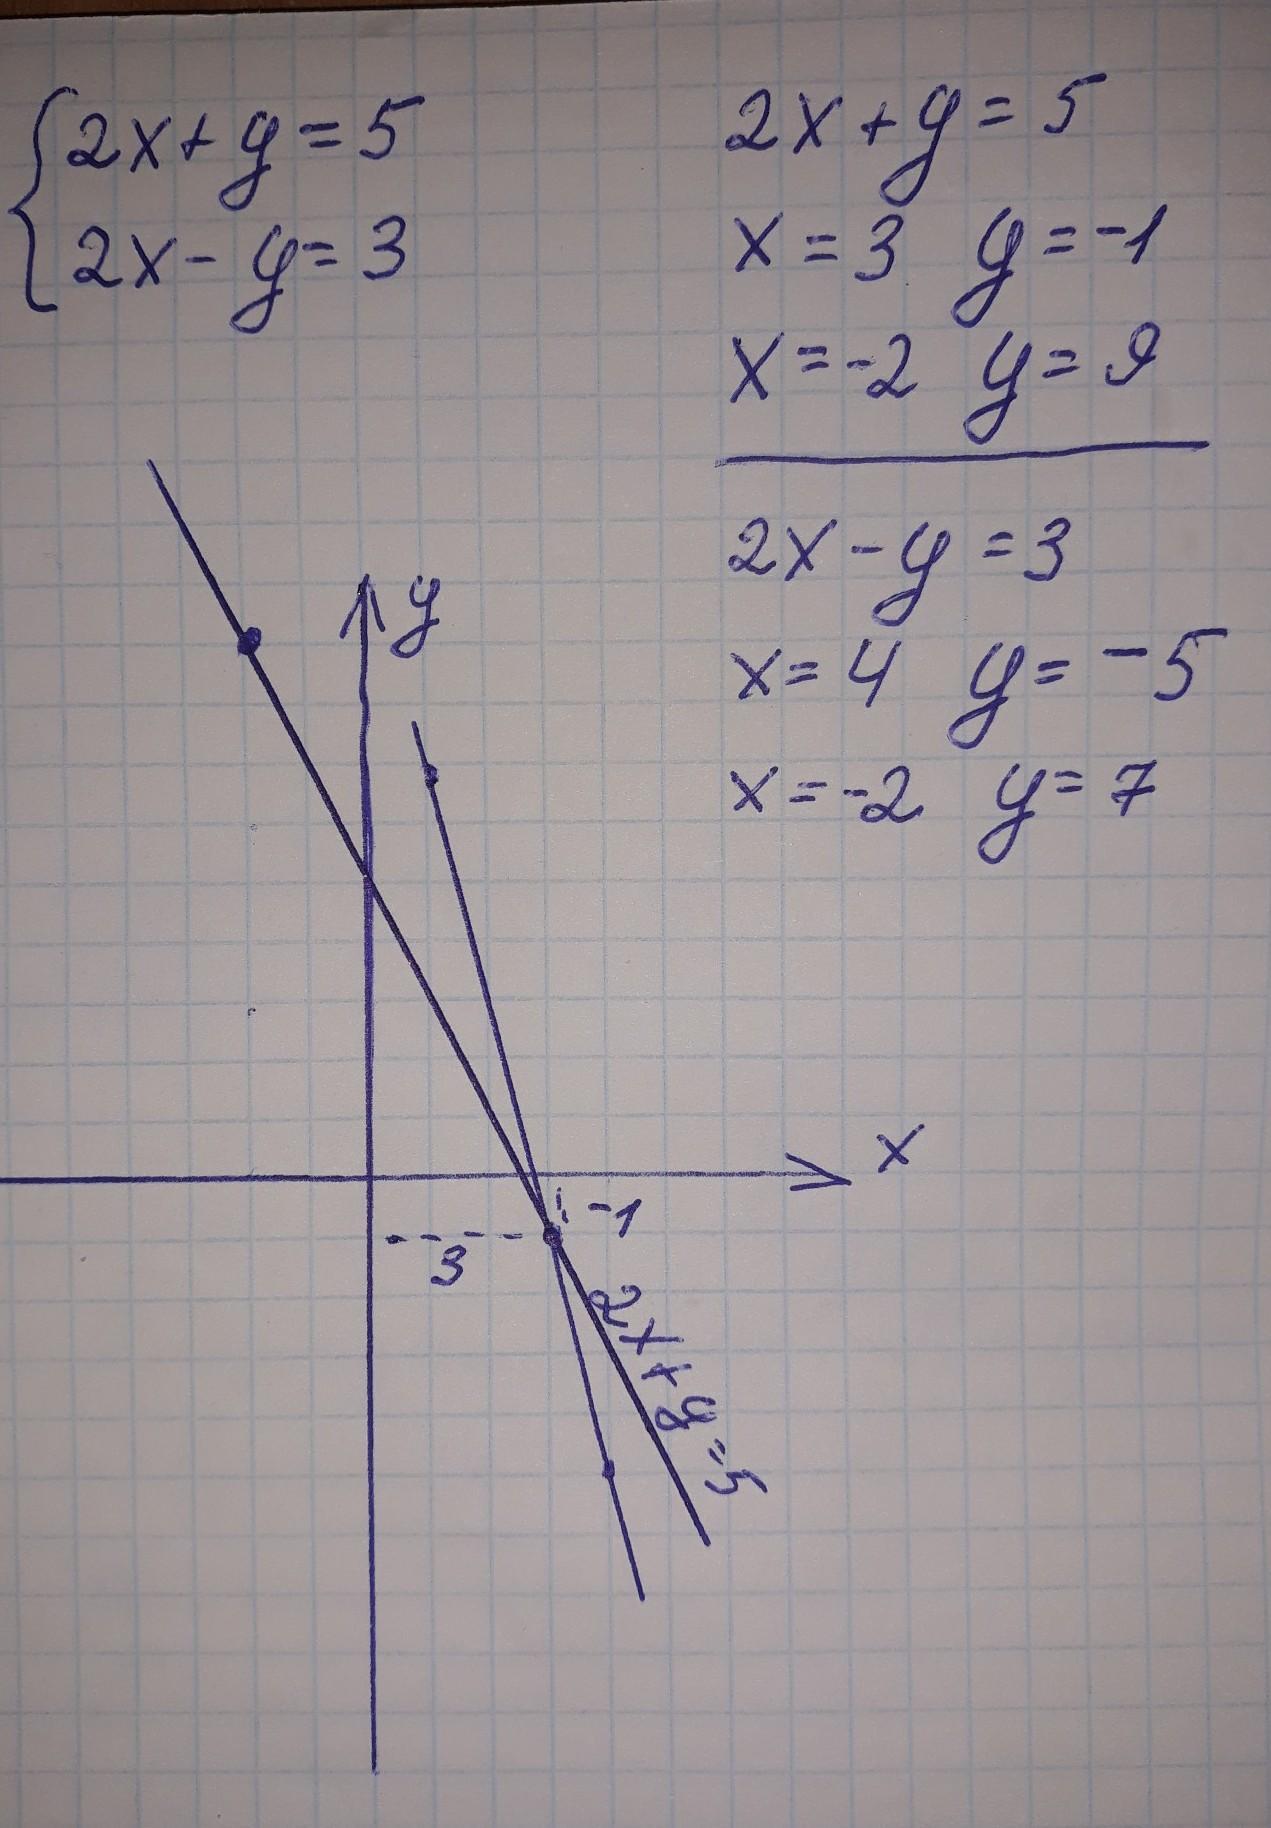 2x+y=5
2x-y=3
2x+y=5
x=3 y=-1
x=-2 y=9
2x-y=3
x=4 y=-5
x=-2 y=7
y
x
-1
3
2x+y=5